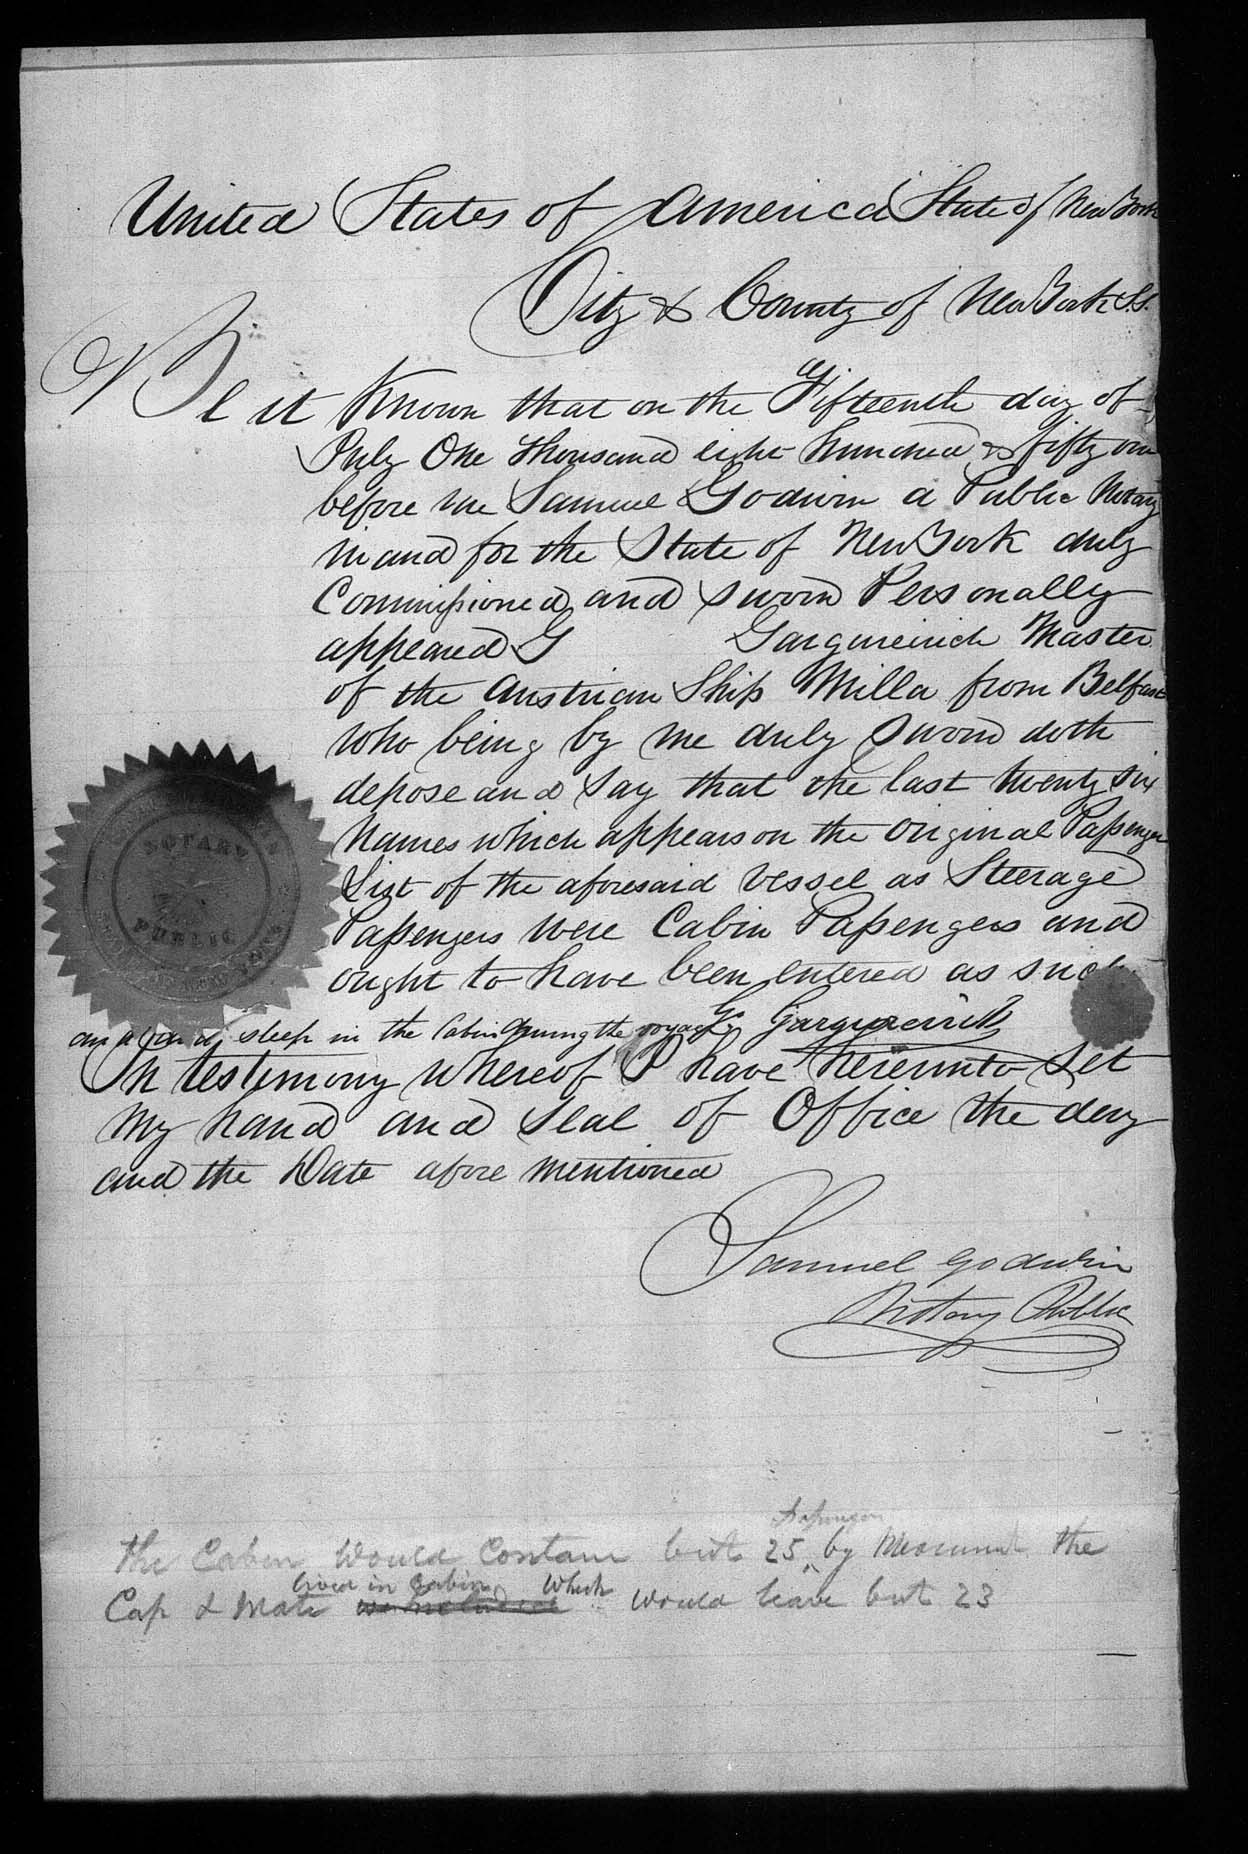 United States of America State of New York
City & County of New York S.S.
Be it Known that on the Fifteenth day of
July One thousand eight hundred & fifty one
before me Samuel Godwin a Public Notary
in and for the State of New York duly
Commissioned and sworn Personally
appeared G Gargurevich Master
of the Austrian Ship Milla from Belfast
who being by me duly sworn doth
depose and say that the last twenty six
Names which appears on the original Passenger
List of the aforesaid vessel as Steerage
Passengers were Cabin Passengers and
ought to have been entered as such
sleep in the Cabin during the voyage G. Gargurevich
In testimony whereof I have hereunto set
my hand and seal of Office the day
and the Date afore mentioned
NOTARY
PUBLIC
Samuel Godwin
Notary Public
Passengers
the Cabin would Contain but 25 by Measurmt the
lived in Cabin which
Cap & Mate would leave but 23